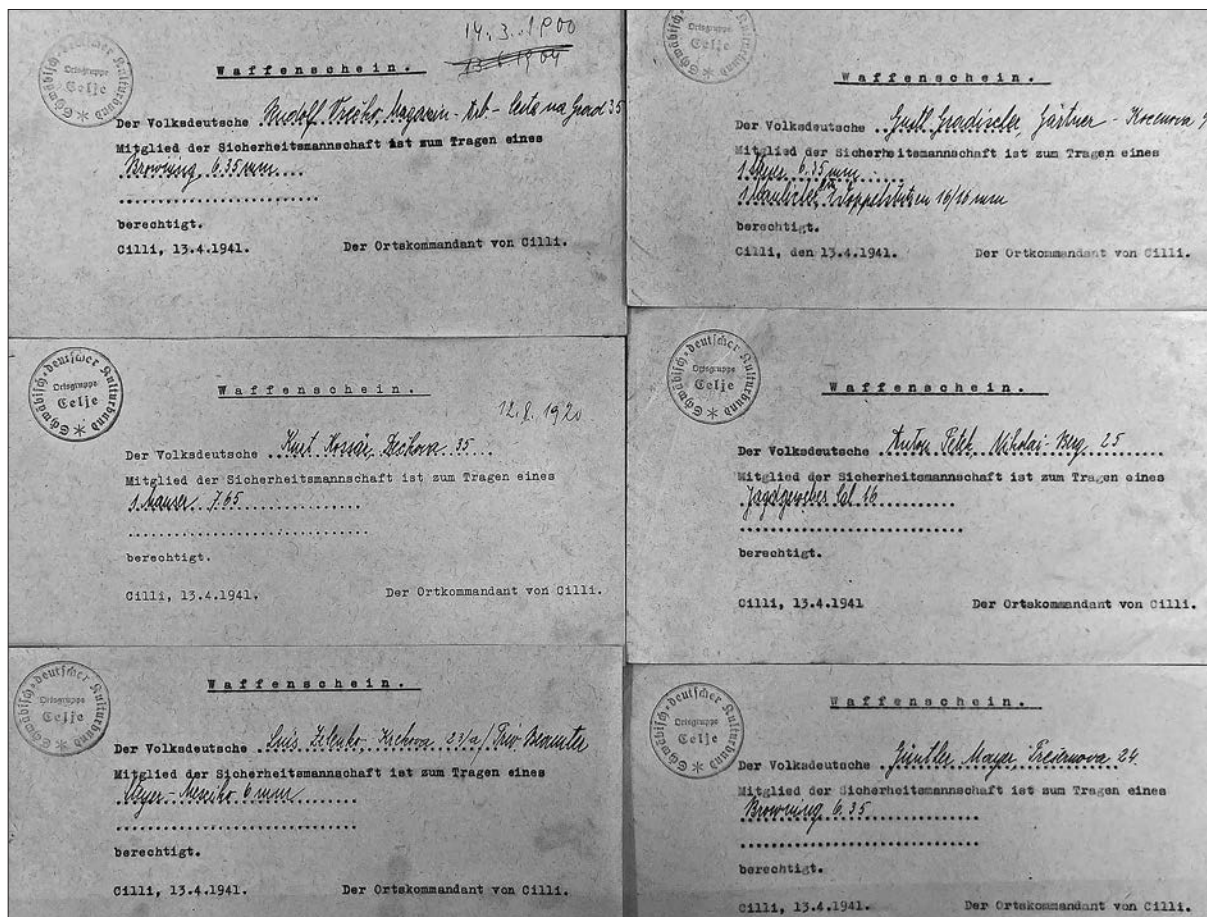 14.3.1900
13.6.1904
Schwäbisch-deutscher Kulturbund
Ortsgruppe
Celje
Waffenschein.
Der Volksdeutsche Rudolf Magazin-Arb- Cesta na Grad 35
Mitglied der Sicherheitsmannschaft ist zum Tragen eines
Browning 6.35 mm
berechtigt.
Cilli, 13.4.1941. Der Ortskommandant von Cilli.
Schwäbisch-deutscher Kulturbund
Ortsgruppe
Celje
Waffenschein.
12.8.1920
Der Volksdeutsche Kurt Dečkova 35
Mitglied der Sicherheitsmannschaft ist zum Tragen eines
1 Mauser 7.65
berechtigt.
Cilli, 13.4.1941. Der Ortkommandant von Cilli.
Schwäbisch-deutscher Kulturbund
Ortsgruppe
Celje
Waffenschein.
Der Volksdeutsche Luis Zelenko Krekova 23/a / Priv. Beamter
Mitglied der Sicherheitsmannschaft ist zum Tragen eines
6 mm
berechtigt.
Cilli, 13.4.1941. Der Ortskommandant von Cilli.
Ortsgruppe
Celje
Kulturbund
Waffenschein.
Der Volksdeutsche Gustl Gradischer, Gärtner - Kocenova
Mitglied der Sicherheitsmannschaft ist zum Tragen eines
1 Steyer 6.35 mm
16/16 mm
berechtigt.
Cilli, den 13.4.1941. Der Ortkommandant von Cilli.
Schwäbisch-deutscher Kulturbund
Ortsgruppe
Celje
Waffenschein.
Der Volksdeutsche Anton Petek, Nikolai-Berg 25
Mitglied der Sicherheitsmannschaft ist zum Tragen eines
Jagdgewehres Cal 16
berechtigt.
Cilli, 13.4.1941 Der Ortskommandant von Cilli.
Schwäbisch-deutscher Kulturbund
Ortsgruppe
Celje
Waffenschein.
Der Volksdeutsche Günther Mayer, Prešernova 24
Mitglied der Sicherheitsmannschaft ist zum Tragen eines
Browning 6.35
berechtigt.
Cilli, 13.4.1941. Der Ortskommandant von Cilli.